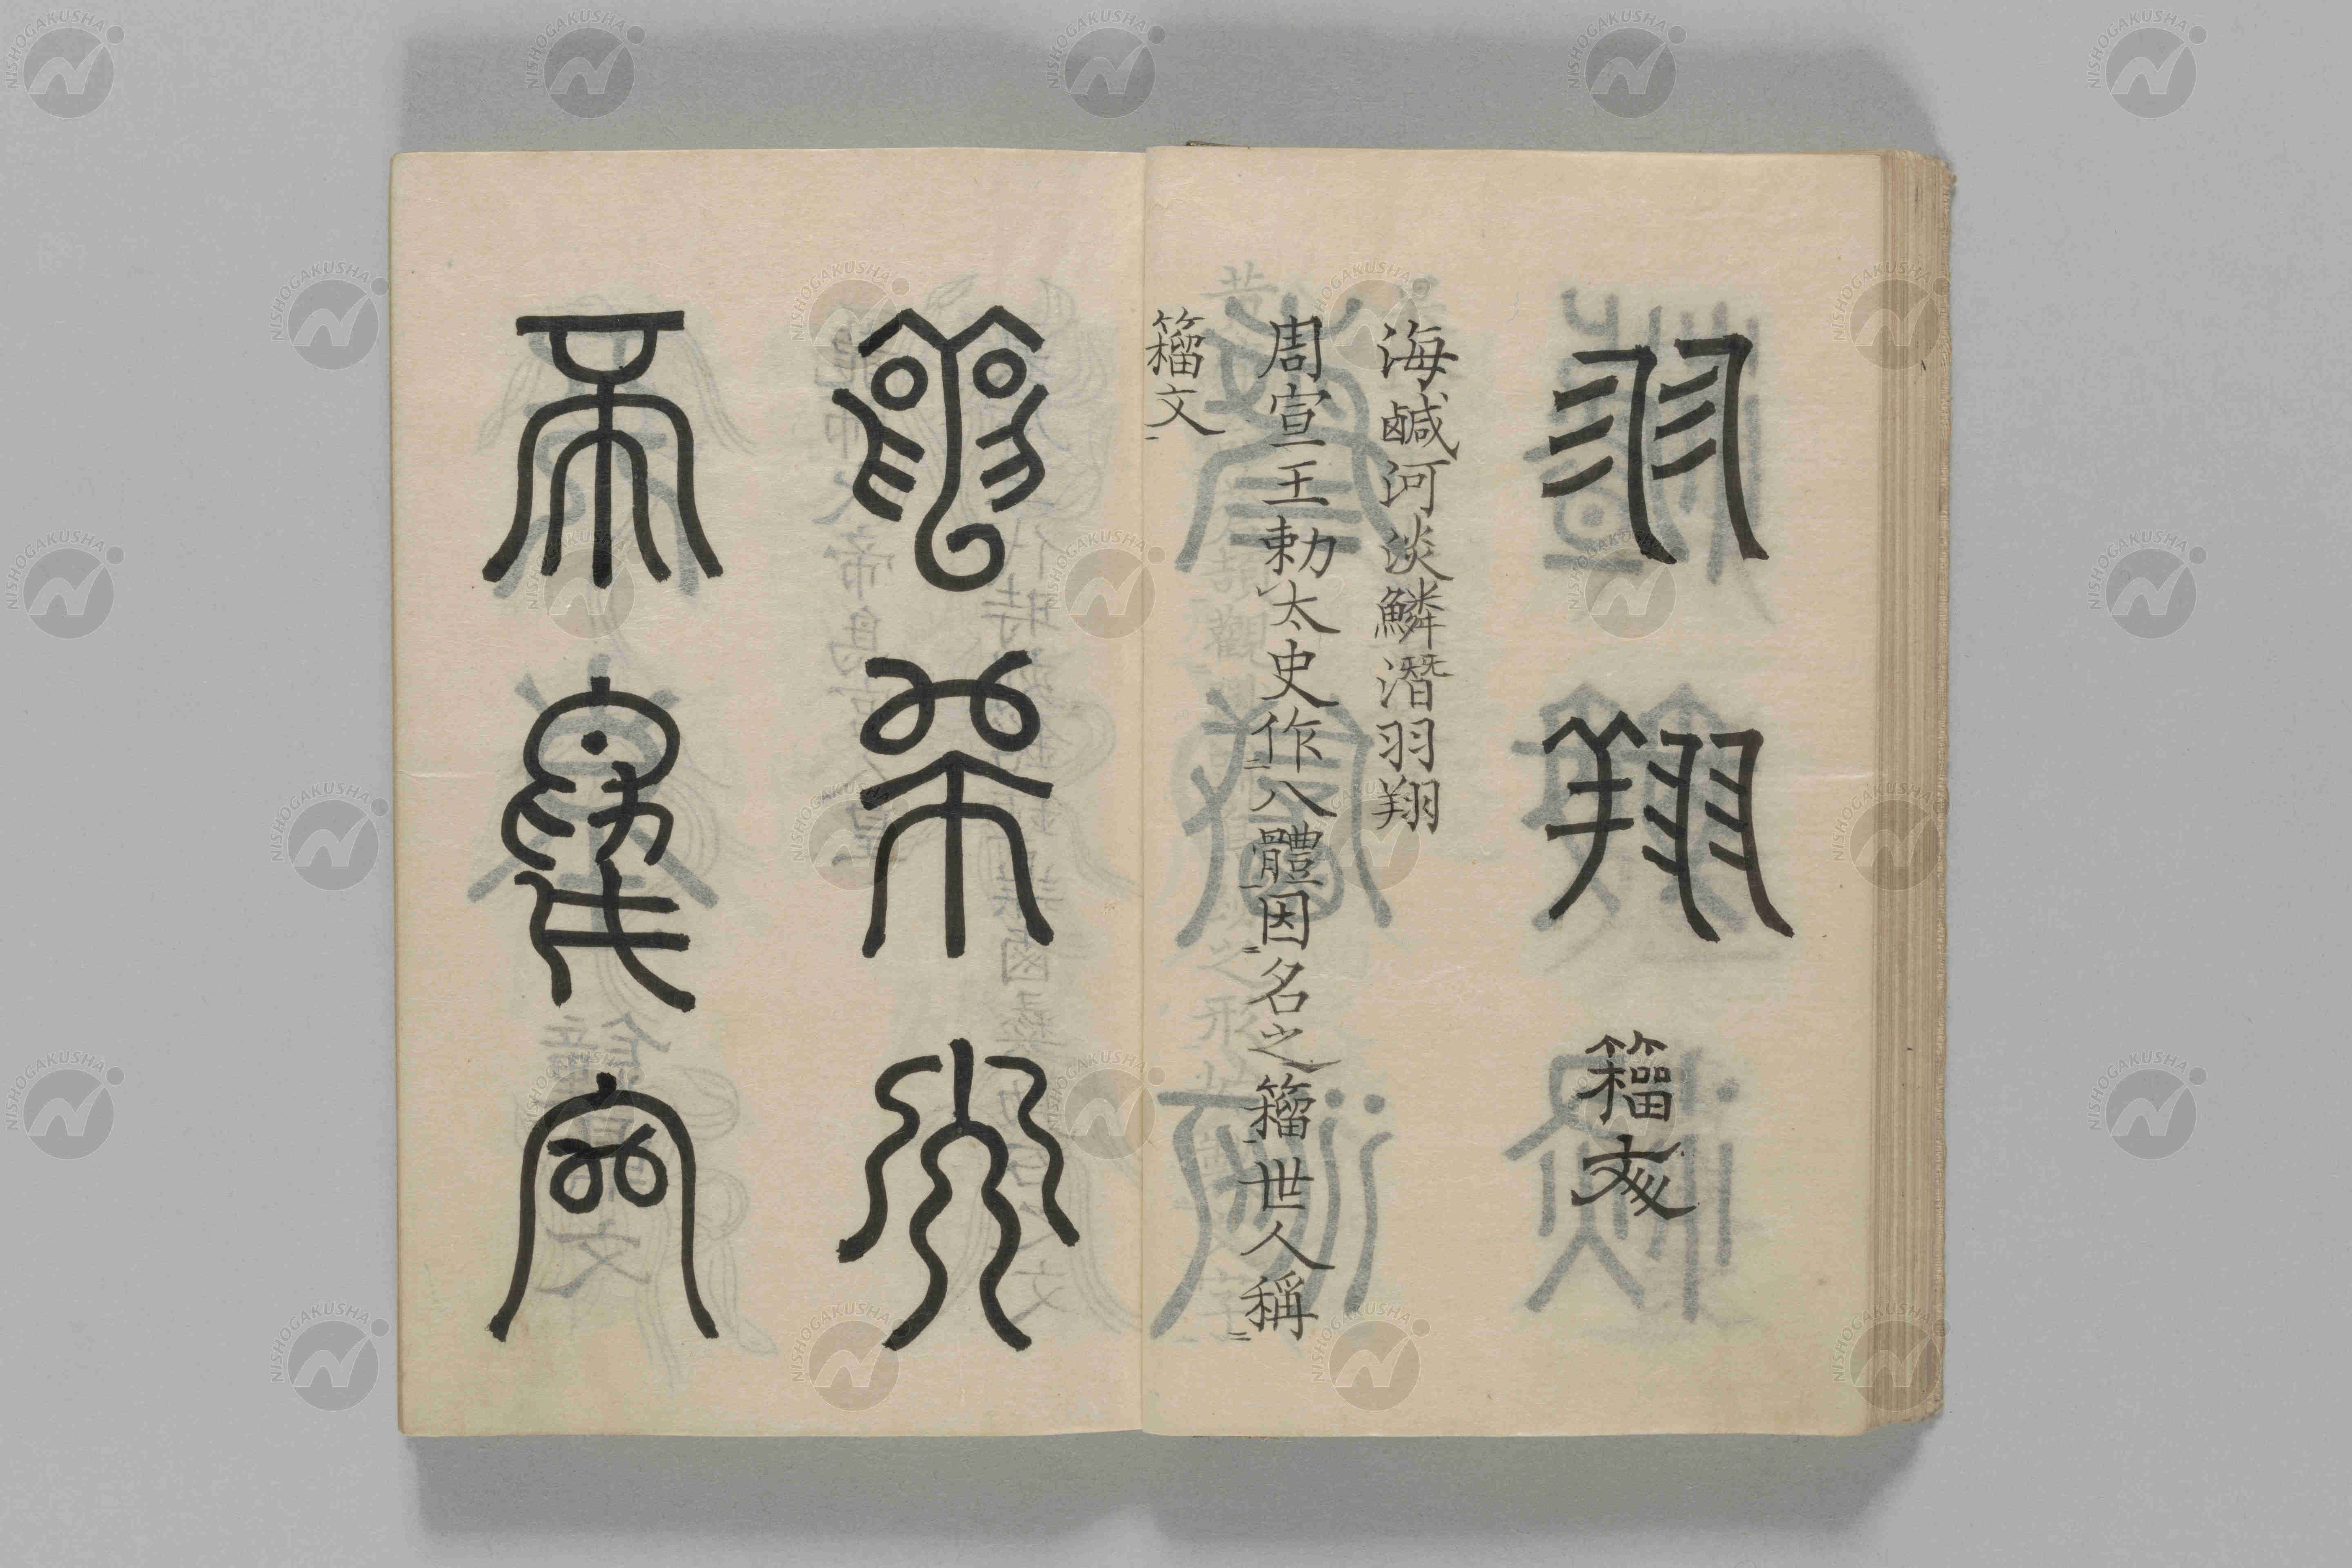 羽翔籀文
海鹹河淡鱗潛羽翔
周宣王勅太史作八體因名之籀世人稱
籀文
龍師火
帝鳥官
NISHOGAKUSHA